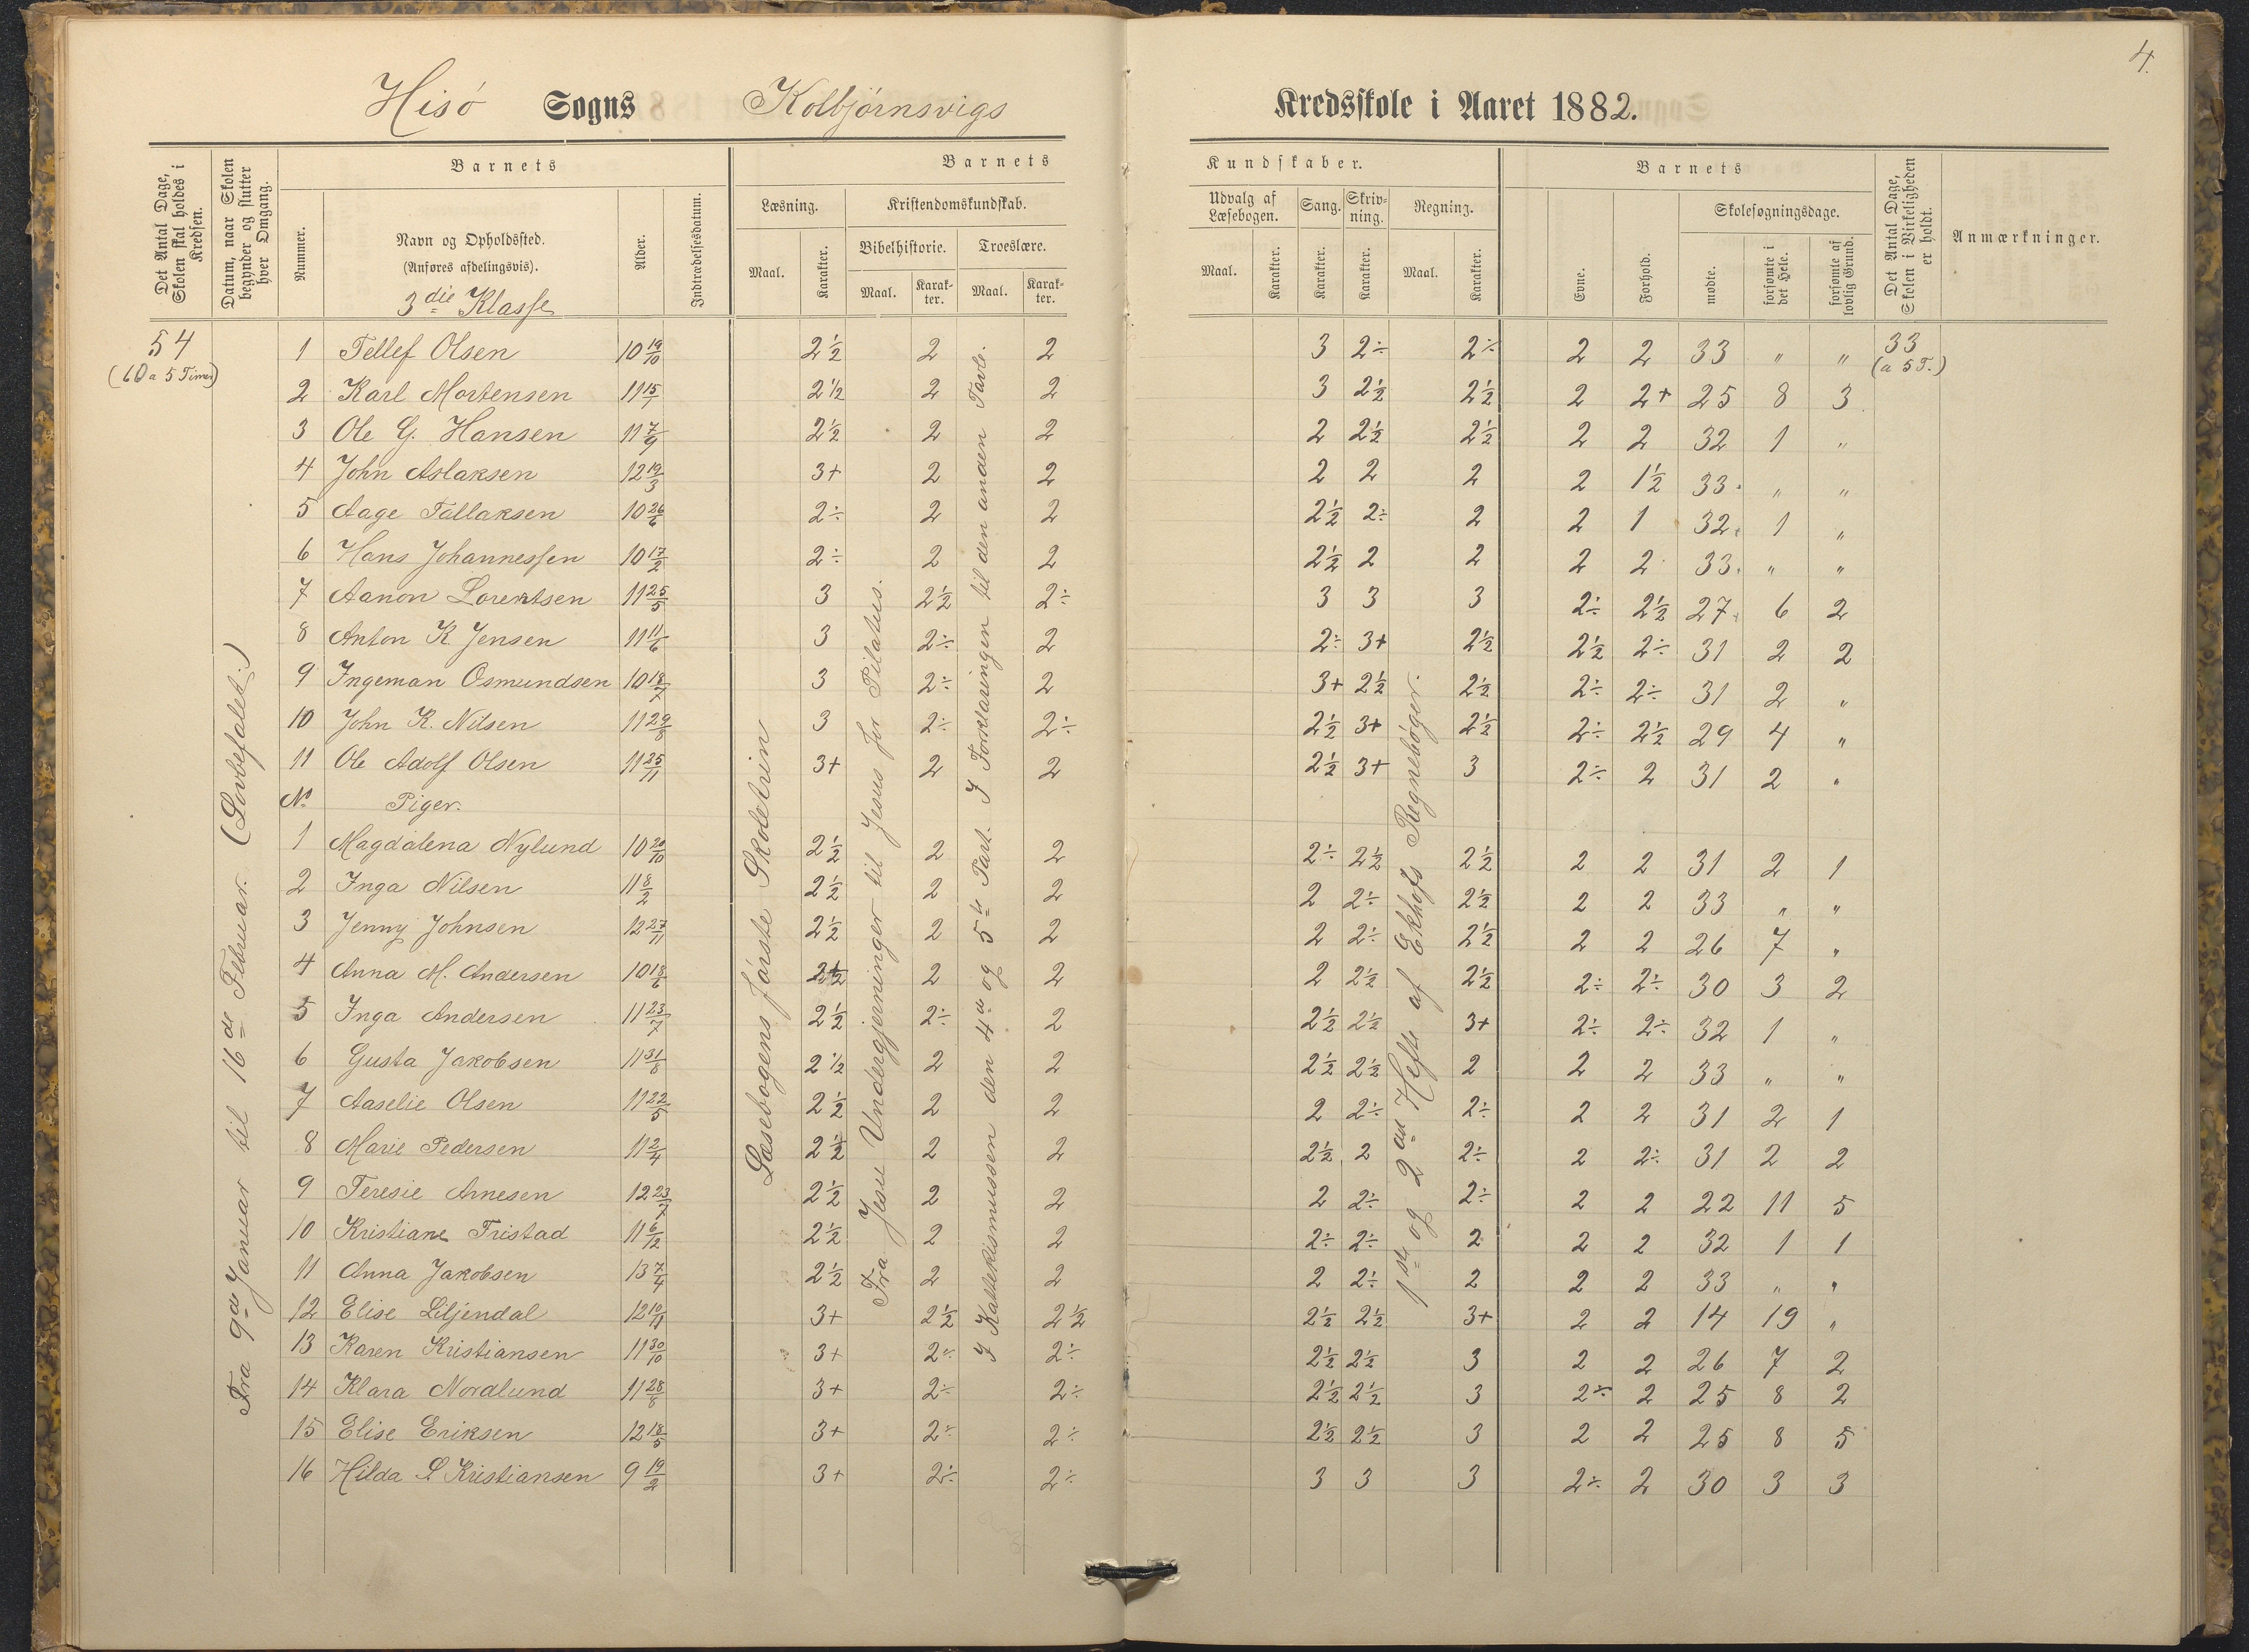 4.
Hisö Sogns Kolbjörnsvigs Kredsskole i Aaret 1882.
Det Antal Dage, Skolen skal holdes i Kredsen.
Datum, naar Skolen begynder og slutter hver Omgang.
Barnets
Nummer.
Navn og Opholdssted.
(Anføres afdelingsvis).
3die Klasse
Alder.
Indtrædelsesdatum.
Barnets Kundskaber.
Læsning.
Maal. Karakter.
Kristendomskundskab.
Bibelhistorie. Troeslære.
Maal. Karakter. Maal. Karakter.
Udvalg af Læsebogen.
Maal. Karakter.
Sang. Karakter.
Skrivning. Karakter.
Regning.
Maal. Karakter.
Barnets
Evne. Forhold.
Skolesøgningsdage.
mødte. forsømte i det Hele. forsømte af lovlig Grund.
Det Antal Dage, Skolen i Virkeligheden er holdt.
Anmærkninger.
54
(60 a 5 Timer)
Fra 9de Januar til 16de Februar. (Lovbefalet.)
Læsebogens förste Skoletrin
Fra Jesu Undergjerninger til Jesus for Pilatus.
I Kattekismussen den 4de og 5te Part. I Forklaringen til den anden Tavle.
1ste og 2den Hefte af Ekhofs Regnebøger.
33
(a 5 T.)
1 Tellef Olsen 10 19/10 2½ 2 2 3 2÷ 2÷ 2 2 33 " "
2 Karl Mortensen 11 15/1 2½ 2 2 3 2½ 2½ 2 2+ 25 8 3
3 Ole G. Hansen 11 7/9 2½ 2 2 2 2½ 2½ 2 2 32 1 "
4 John Aslaksen 12 19/3 3+ 2 2 2 2 2 2 1½ 33 " "
5 Aage Tallaksen 10 26/6 2÷ 2 2 2½ 2÷ 2 2 1 32 1 "
6 Hans Johannessen 10 17/2 2÷ 2 2 2½ 2 2 2 2 33 " "
7 Aanon Lorentsen 11 25/5 3 2½ 2÷ 3 3 3 2÷ 2½ 27 6 2
8 Anton K. Jensen 11 11/6 3 2÷ 2 2÷ 3+ 2½ 2½ 2÷ 31 2 2
9 Ingeman Osmundsen 10 18/7 3 2÷ 2 3+ 2½ 2½ 2÷ 2÷ 31 2 "
10 John K. Nilsen 11 29/8 3 2÷ 2÷ 2½ 3+ 2½ 2÷ 2½ 29 4 "
11 Ole Adolf Olsen 11 25/11 3+ 2 2 2½ 3+ 3 2÷ 2 31 2 "
No Piger.
1 Magdalena Nylund 10 20/10 2½ 2 2 2÷ 2½ 2½ 2 2 31 2 1
2 Inga Nilsen 11 8/2 2½ 2 2 2 2÷ 2½ 2 2 33 " "
3 Jenny Johnsen 12 27/11 2½ 2 2 2 2÷ 2½ 2 2 26 7 "
4 Anna M. Andersen 10 18/6 2½ 2 2 2 2½ 2½ 2÷ 2÷ 30 3 2
5 Inga Andersen 11 23/7 2½ 2÷ 2 2½ 2½ 3+ 2÷ 2÷ 32 1 "
6 Gusta Jakobsen 11 31/8 2½ 2 2 2½ 2½ 2 2 2 33 " "
7 Aaselie Olsen 11 22/5 2½ 2 2 2 2÷ 2÷ 2 2 31 2 1
8 Marie Pedersen 11 2/4 2½ 2 2 2½ 2 2÷ 2 2÷ 31 2 2
9 Teresie Arnesen 12 23/7 2½ 2 2 2 2÷ 2÷ 2 2 22 11 5
10 Kristiane Fristad 11 6/12 2½ 2 2 2÷ 2÷ 2 2 2 32 1 1
11 Anna Jakobsen 13 7/4 2½ 2 2 2 2÷ 2 2 2 33 " "
12 Elise Liljendal 12 10/11 3+ 2½ 2½ 2½ 2½ 3+ 2 2 14 19 "
13 Karen Kristiansen 11 30/10 3+ 2÷ 2÷ 2½ 2½ 3 2 2 26 7 2
14 Klara Nordlund 11 28/8 3+ 2÷ 2÷ 2½ 2½ 3 2÷ 2 25 8 2
15 Elise Eriksen 12 18/5 3+ 2÷ 2÷ 2½ 2½ 3 2 2 25 8 5
16 Hilda S. Kristiansen 9 19/2 3+ 2÷ 2÷ 3 3 3 2÷ 2 30 3 3